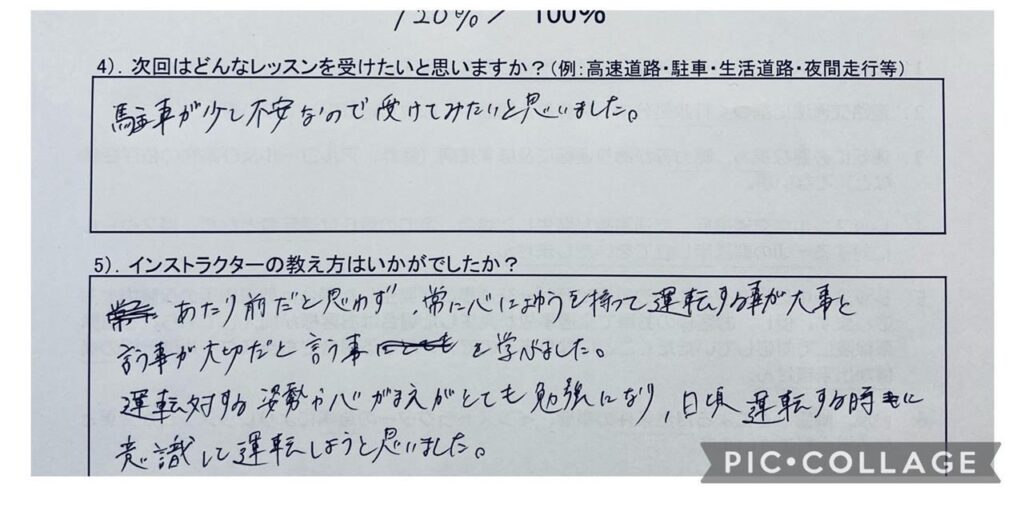 120% / 100%
4). 次回はどんなレッスンを受けたいと思いますか?(例:高速道路・駐車・生活道路・夜間走行等)
駐車が少し不安なので受けてみたいと思いました。
5). インストラクターの教え方はいかがでしたか?
あたり前だと思わず、常に心によゆうを持って運転する事が大事と
言う事が大切だと言う事を学びました。
運転対する姿勢や心がまえがとても勉強になり、日頃運転する時に
意識して運転しようと思いました。
PIC•COLLAGE